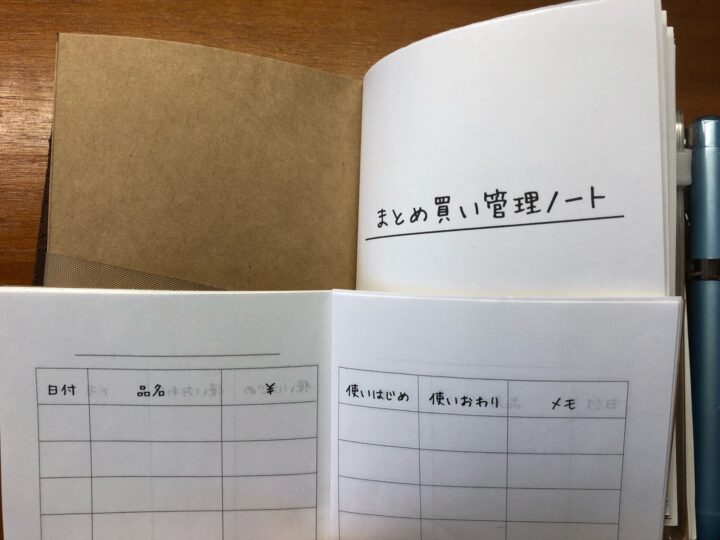 まとめ買い管理ノート
日付 品名 ¥ 使いはじめ 使いおわり メモ